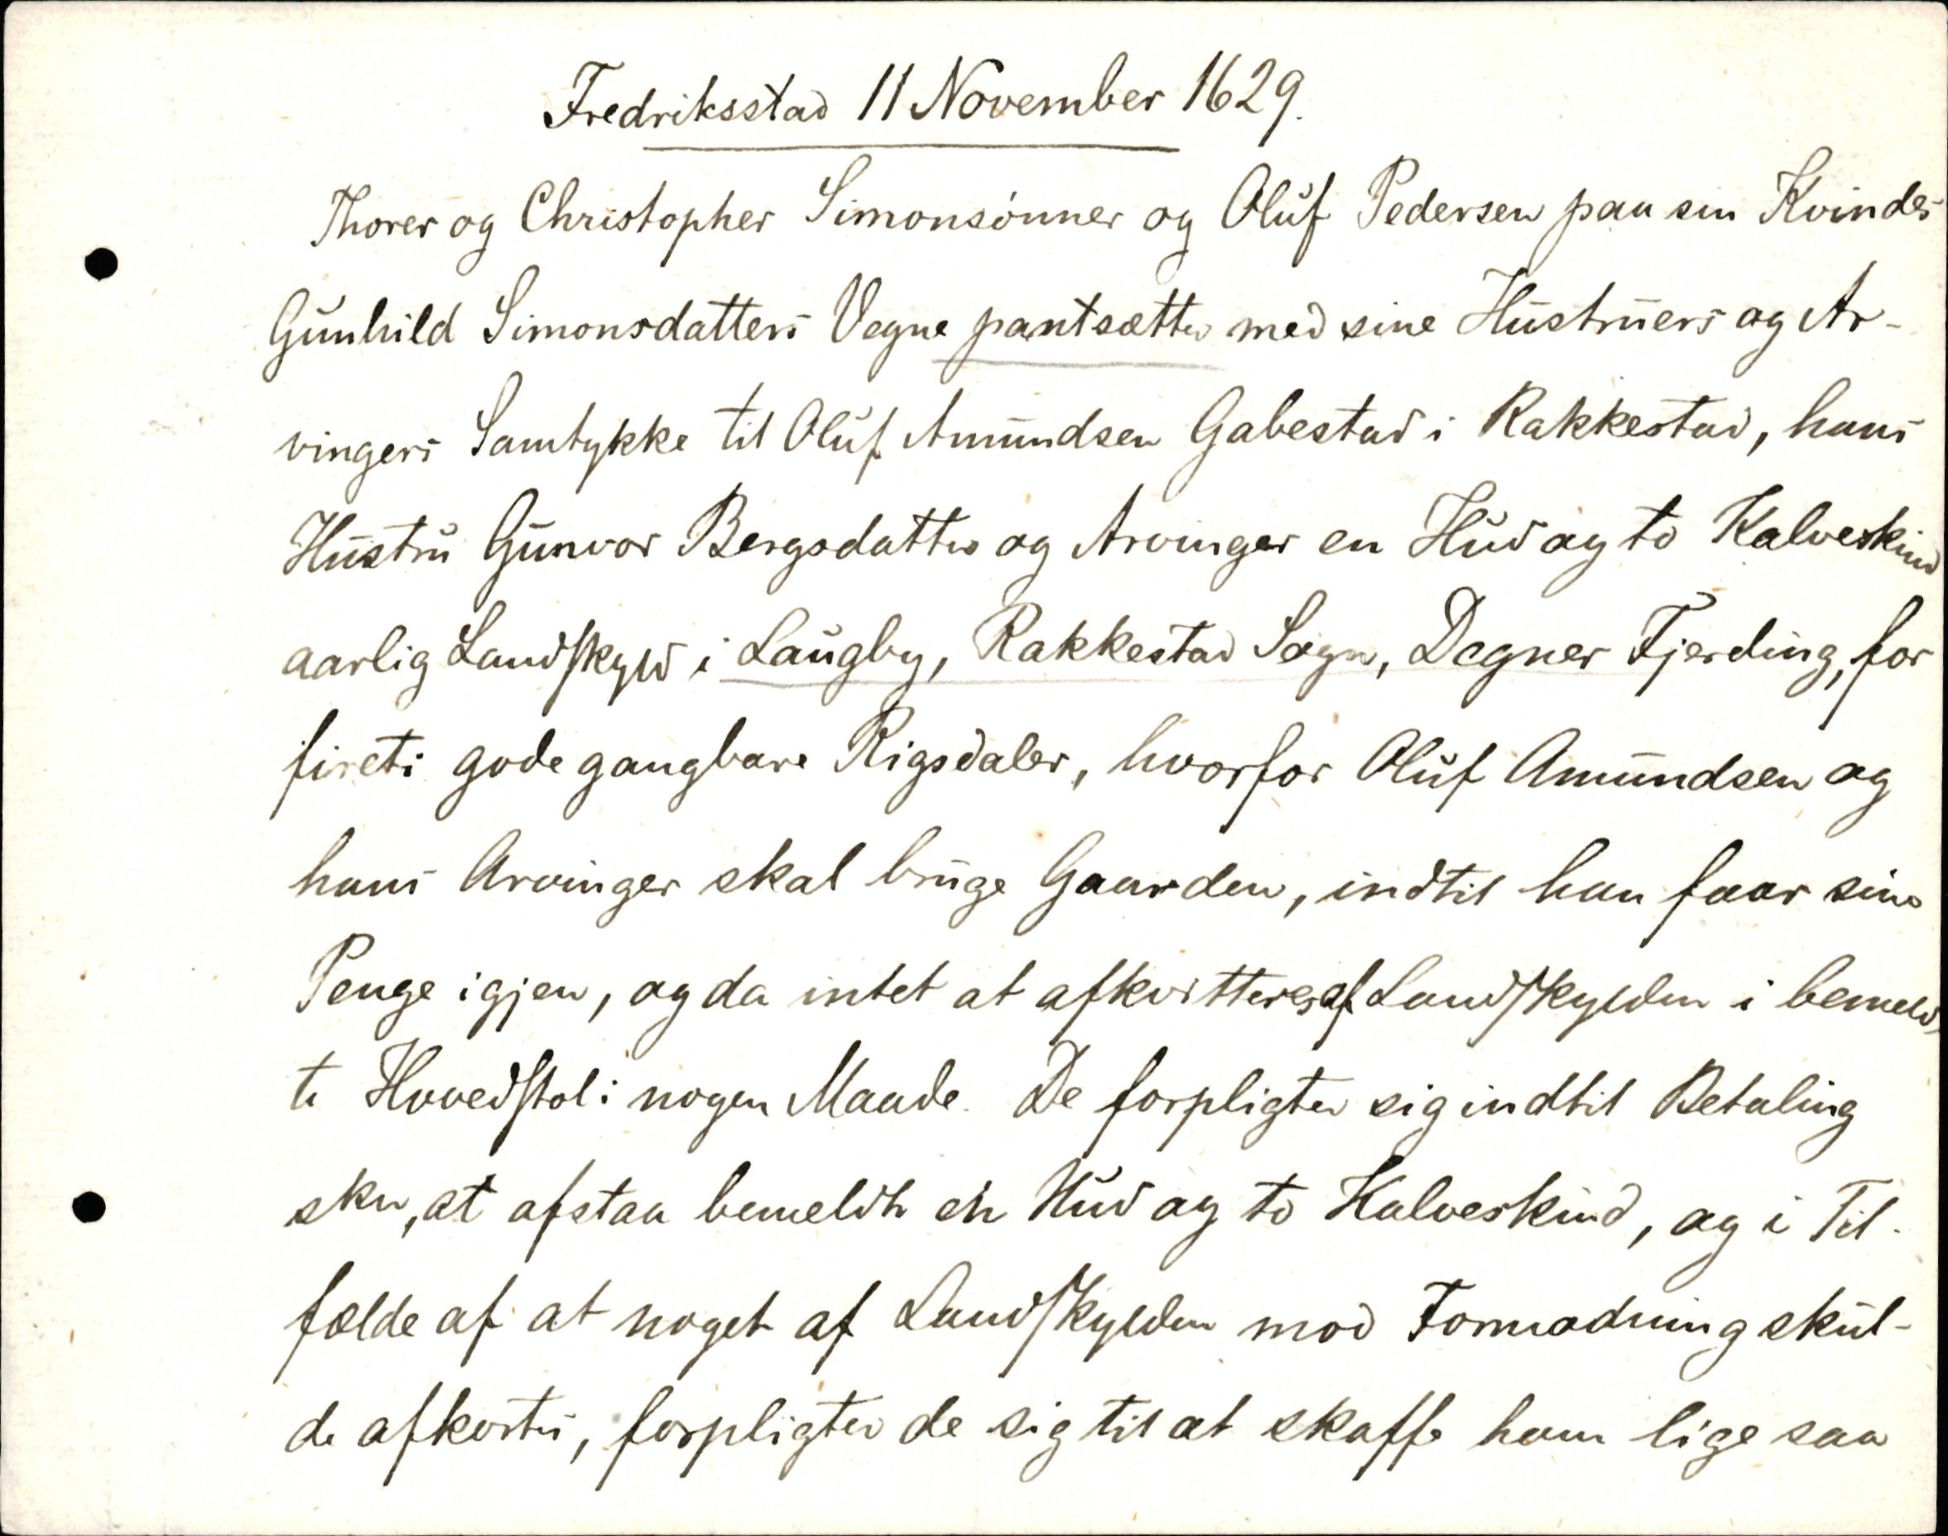 Fredriksstad 11 November 1629.
Thorer og Christopher Simonsønner og Oluf Pedersen paa sin Kvindes
Gunhild Simonsdatters Vegne pantsætter med sine Hustruers og Ar-
vingers Samtykke til Oluf Amundsen Gabestad i Rakkestad, hans
Hustru Gunvor Bergsdatter og Arvinger en Hud og to Kalveskind
aarlig Landskyld i Laugby, Rakkestad Sogn, Degner Fjerding, for
fireti gode gangbare Rigsdaler, hvorfor Oluf Amundsen og
hans Arvinger skal bruge Gaarden, indtil han faar sine
Penge igjen, og da intet at afkvitteres af Landskylden i bemeld-
te Hovedstol i nogen Maade. De forpligter sig indtil Betaling
sker, at afstaa bemeldte en Hud og to Kalveskind, og i Til-
fælde af at noget af Landskylden mod Formodning skul-
de afkortes, forpligter de sig til at skaffe ham lige saa